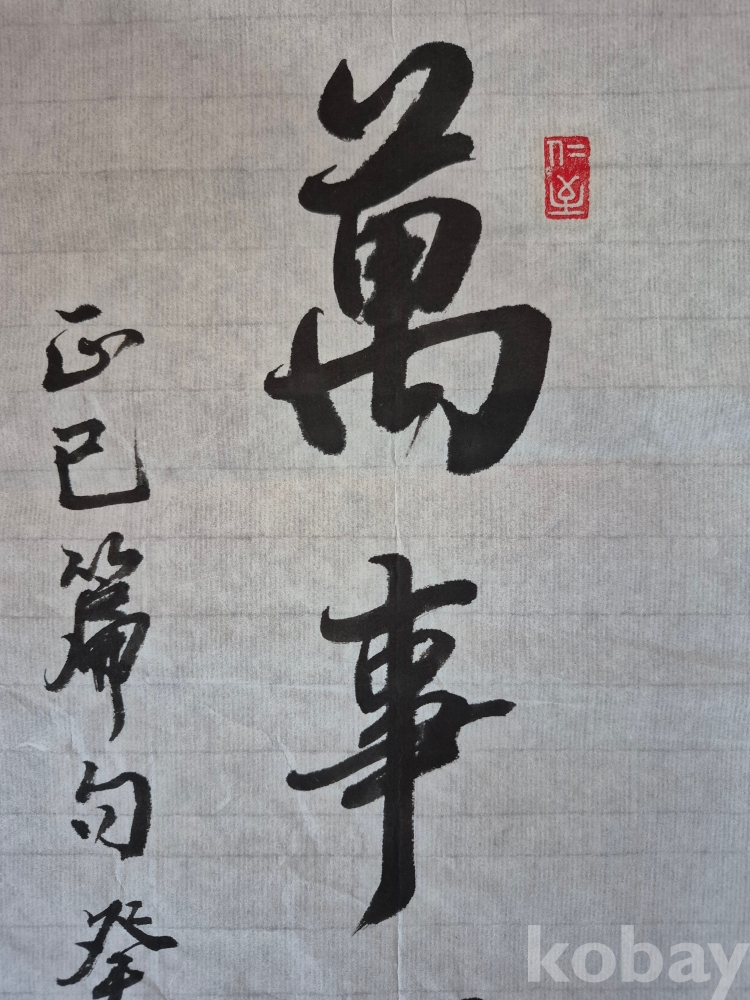 萬事
正己篇句癸
kobay